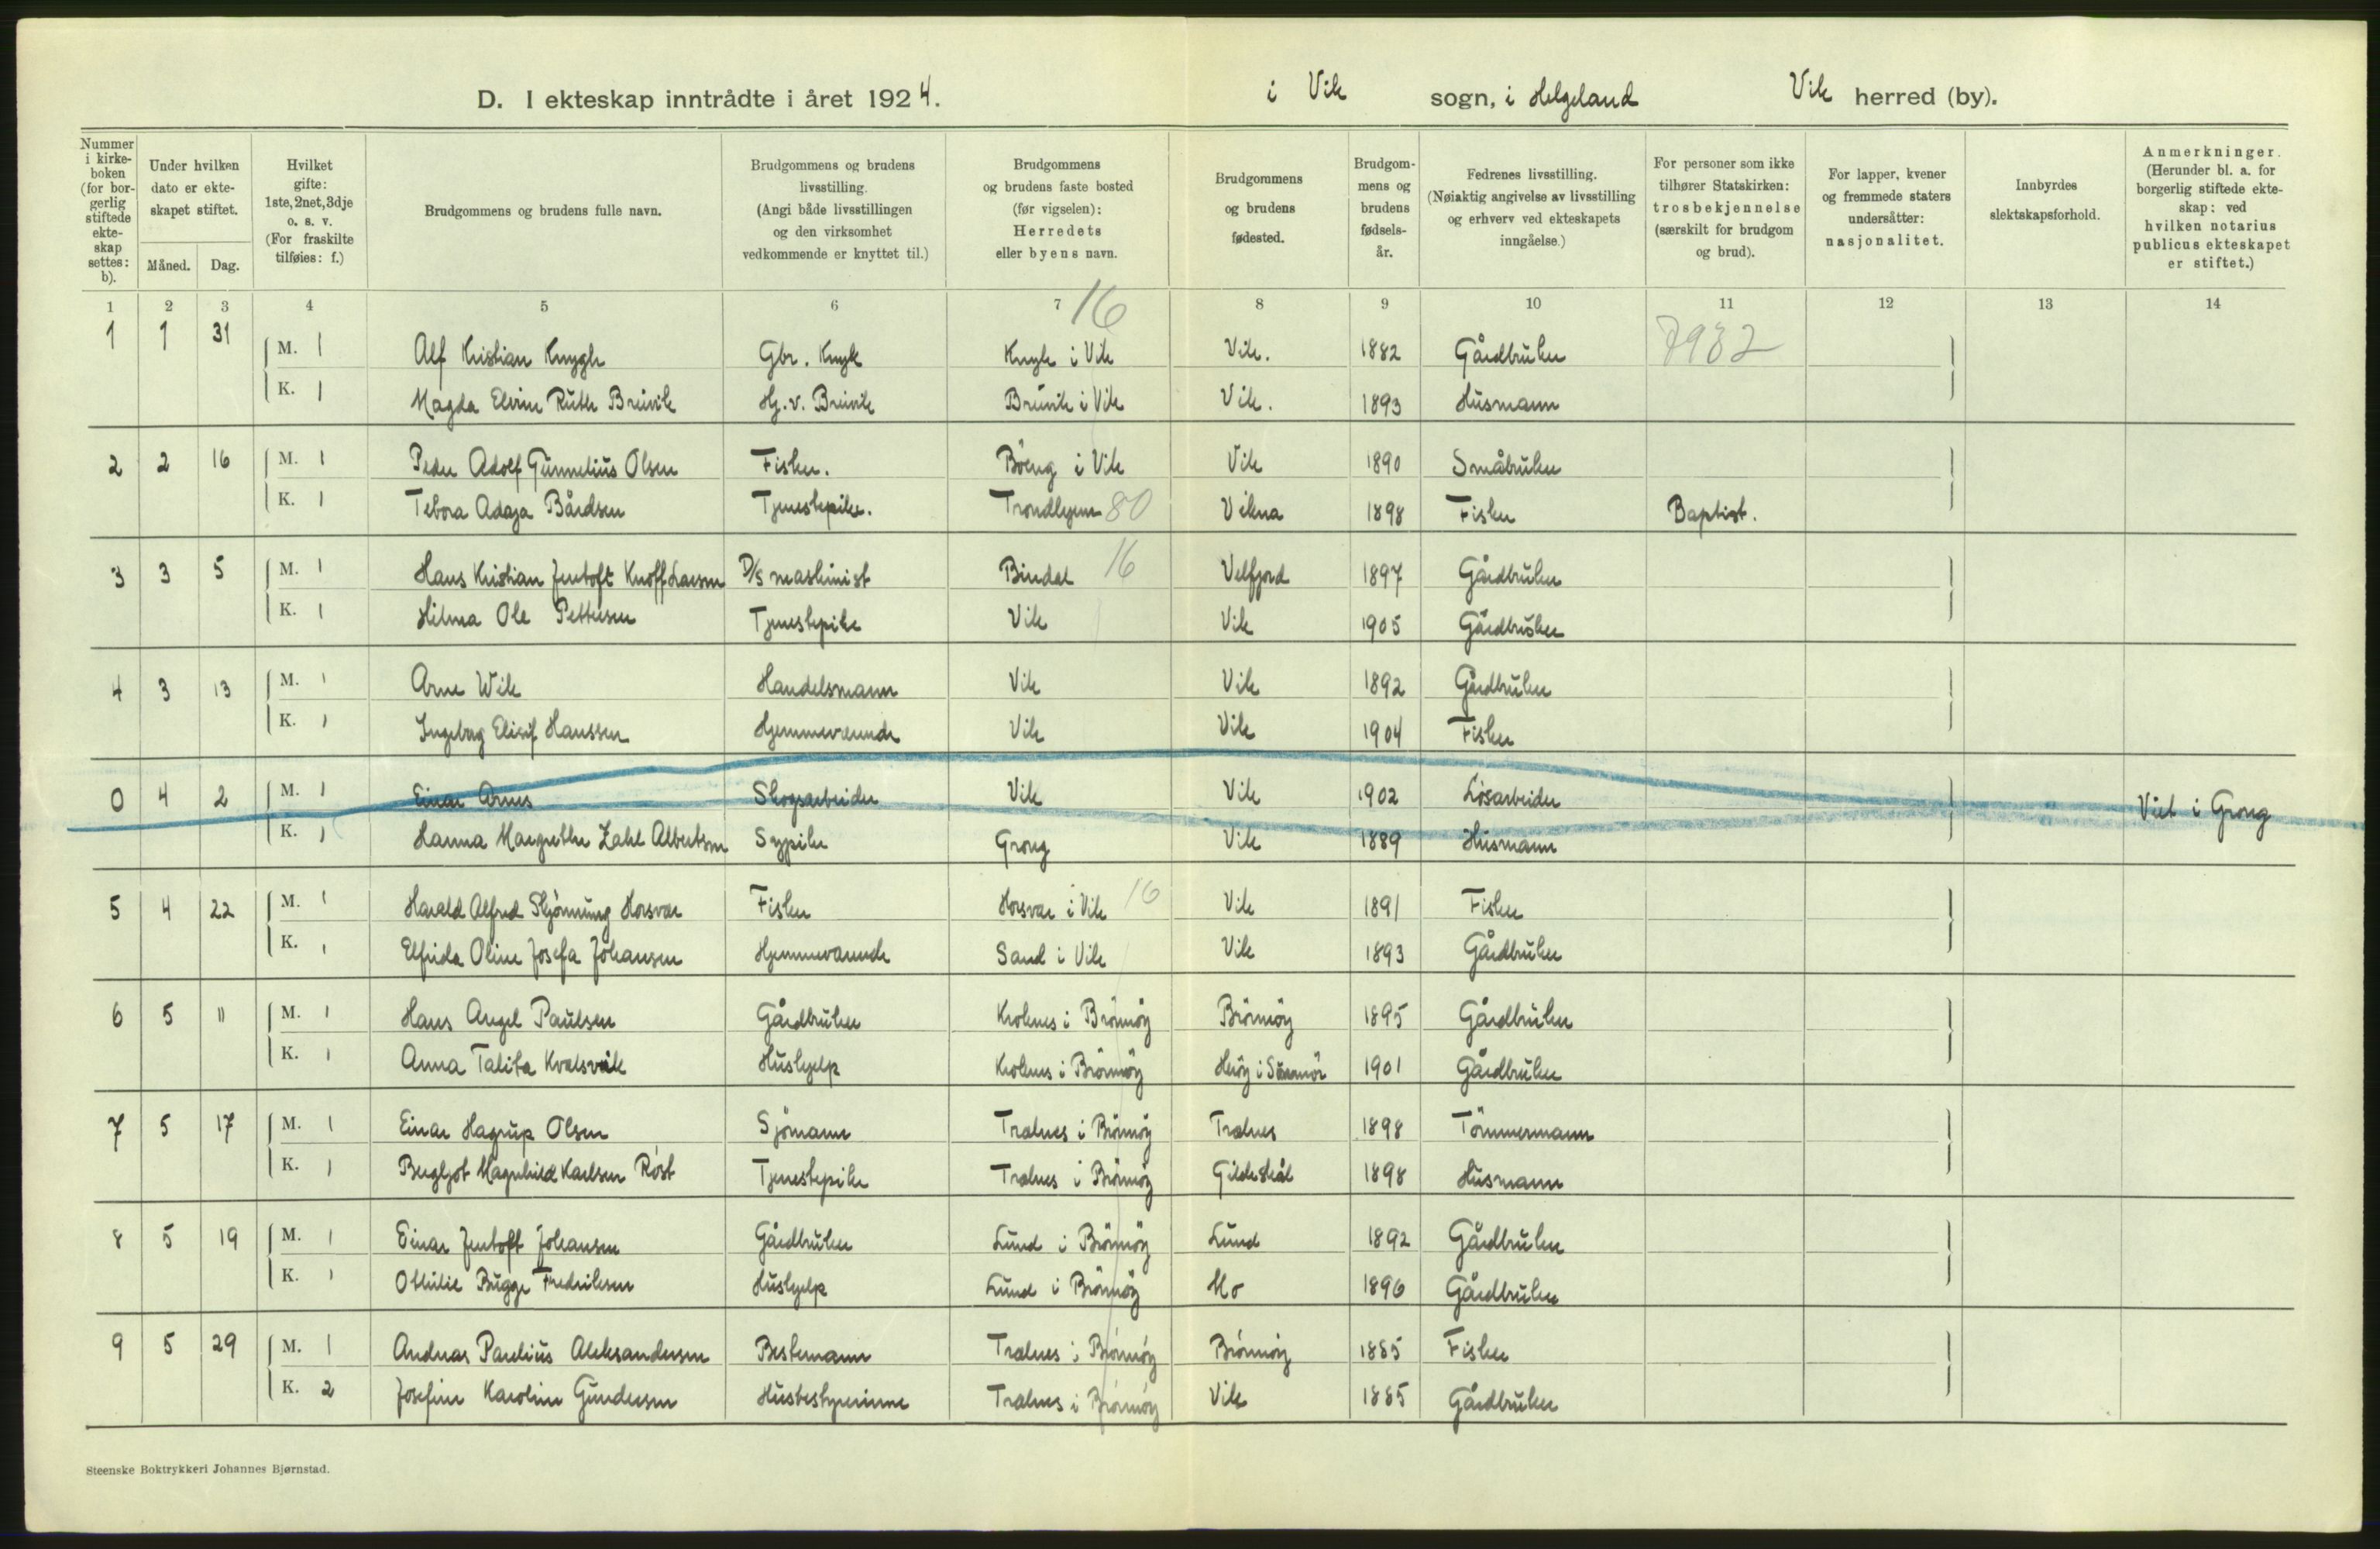 D. I ekteskap inntrådte i året 1924. i Vik sogn, i Helgeland Vik herred (by).
Nummer i kirke-boken (for bor-gerlig stiftede ekte-skap settes: b).
Under hvilken dato er ekte-skapet stiftet.
Måned. Dag.
Hvilket gifte: 1ste, 2net, 3dje o. s. v. (For fraskilte tilføies: f.)
Brudgommens og brudens fulle navn.
Brudgommens og brudens livsstilling. (Angi både livsstillingen og den virksomhet vedkommende er knyttet til.)
Brudgommens og brudens faste bosted (før vigselen): Herredets eller byens navn.
Brudgommens og brudens fødested.
Brudgom-mens og brudens fødsels-år.
Fedrenes livsstilling. (Nøiaktig angivelse av livsstilling og erhverv ved ekteskapets inngåelse.)
For personer som ikke tilhører Statskirken: trosbekjennelse (særskilt for brudgom og brud).
For lapper, kvener og fremmede staters undersåtter: nasjonalitet.
Innbyrdes slektskapsforhold.
Anmerkninger. (Herunder bl. a. for borgerlig stiftede ekte-skap: ved hvilken notarius publicus ekteskapet er stiftet.)
1 2 3 4 5 6 7 8 9 10 11 12 13 14
16
1 1 31 M. 1 Alf Kristian Knygh Gbr. Knyk Knyk i Vik Vik. 1882 Gårdbruker 7982
K. 1 Magda Elvine Ruth Breivik Hj. v. Breivik Breivik i Vik Vik. 1893 Husmann
2 2 16 M. 1 Peder Adolf Gunnelius Olsen Fisker. Böeng i Vik Vik 1890 Småbruker
K. 1 Tebora Adaja Bårdsen Tjenestepike. Trondhjem 80 Vikna 1898 Fisker Baptist.
3 3 5 M. 1 Hans Kristian Jentoft Knoff Larsen D/s maskinist Bindal 16 Velfjord 1897 Gårdbruker
K. 1 Hilma Ole Pettersen Tjenestepike Vik Vik 1905 Gårdbruker
4 3 13 M. 1 Arne Wik Handelsmann Vik Vik 1892 Gårdbruker
K. 1 Ingeborg Elisif Hanssen Hjemmeværende Vik Vik 1904 Fisker
0 4 2 M. 1 Einar Arnes Skogsarbeider Vik Vik 1902 Løsarbeider Viet i Grong
K. 1 Hanna Margrethe Zahl Albertsen Sypike Grong Vik 1889 Husmann
5 4 22 M. 1 Harald Alfred Skjönning Horsvær Fisker Horsvær i Vik 16 Vik 1891 Fisker
K. 1 Elfrida Oline Josefa Johansen Hjemmeværende Sand i Vik Vik 1893 Gårdbruker
6 5 11 M. 1 Hans Angel Paulsen Gårdbruker Kroknes i Brönnöy Brönnöy 1895 Gårdbruker
K. 1 Anna Talita Kvalsvik Hushjelp Kroknes i Brönnöy Heröy i Sönnmör 1901 Gårdbruker
7 5 17 M. 1 Einar Hagrup Olsen Sjömann Trælnes i Brönnöy Trælnes 1898 Tömmermann
K. 1 Bergljot Magnhild Karlsen Röst Tjenestepike Trælnes i Brönnöy Gildeskål 1898 Husmann
8 5 19 M. 1 Einar Jentoft Johansen Gårdbruker Lund i Brönnöy Lund 1892 Gårdbruker
K. 1 Ottilie Bugge Fredriksen Hushjelp Lund i Brönnöy Mo 1896 Gårdbruker
9 5 29 M. 1 Andreas Paulius Aleksandersen Bestemann Trælnes i Brönnöy Brönnöy 1885 Fisker
K. 2 Josefine Karoline Gundersen Husbestyrerinne Trælnes i Brönnöy Vik 1885 Gårdbruker
Steenske Boktrykkeri Johannes Bjørnstad.